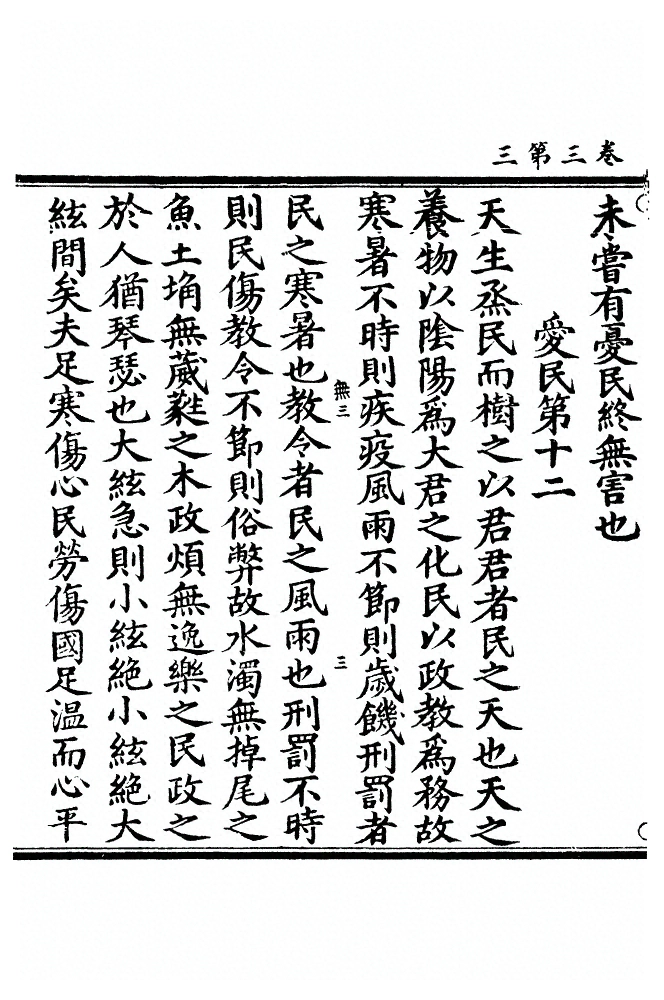 卷三第三
未嘗有憂民終無害也
愛民第十二
天生烝民而樹之以君君者民之天也天之
養物以陰陽爲大君之化民以政教爲務故
寒暑不時則疾疫風雨不節則歲饑刑罰者
無三
三
民之寒暑也教令者民之風雨也刑罰不時
則民傷教令不節則俗弊故水濁無掉尾之
魚土埆無葳蕤之木政煩無逸樂之民政之
於人猶琴瑟也大絃急則小絃絶小絃絶大
絃間矣夫足寒傷心民勞傷國足溫而心平